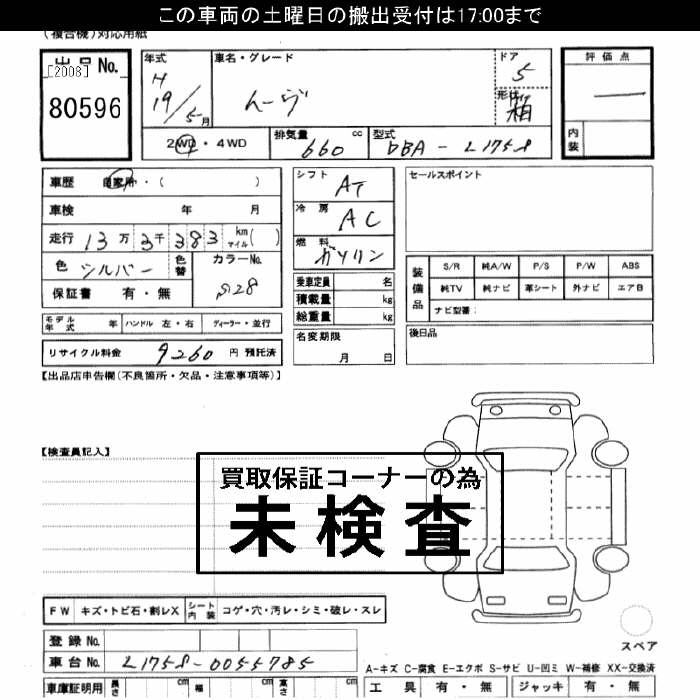 この車両の土曜日の搬出受付は17:00まで
(複合機)対応用紙
出品 No.
[2008]
80596
年式
H
19/5月
車名・グレード
ムーヴ
ドア
5
形状
箱
評価点
内装
2WD・4WD
排気量 cc
660
型式
DBA-L175S
車歴 自家用・( )
車検 年 月
走行 13万 3千 383 km マイル( )
色 シルバー
色替
カラーNo.
S28
保証書 有・無
モデル年式 年 ハンドル 左・右 ディーラー・並行
リサイクル料金 9260 円 預託済
シフト AT
冷房 AC
燃料 ガソリン
乗車定員 名
積載量 kg
総重量 kg
名変期限
月 日
セールスポイント
装備品
S/R 純A/W P/S P/W ABS
純TV 純ナビ 革シート 外ナビ エアB
ナビ型番:
後日品
【出品店申告欄(不良箇所・欠品・注意事項等)】
【検査員記入】
買取保証コーナーの為
未検査
FW キズ・トビ石・割レX シート内装 コゲ・穴・汚レ・シミ・破レ・スレ
登録 No.
車台 No. L175S-0055785
車庫証明用 長さ cm 幅 cm 高さ cm
スペア
A-キズ C-腐食 E-エクボ S-サビ U-凹ミ W-補修 XX-交換済
工具 有・無 ジャッキ 有・無